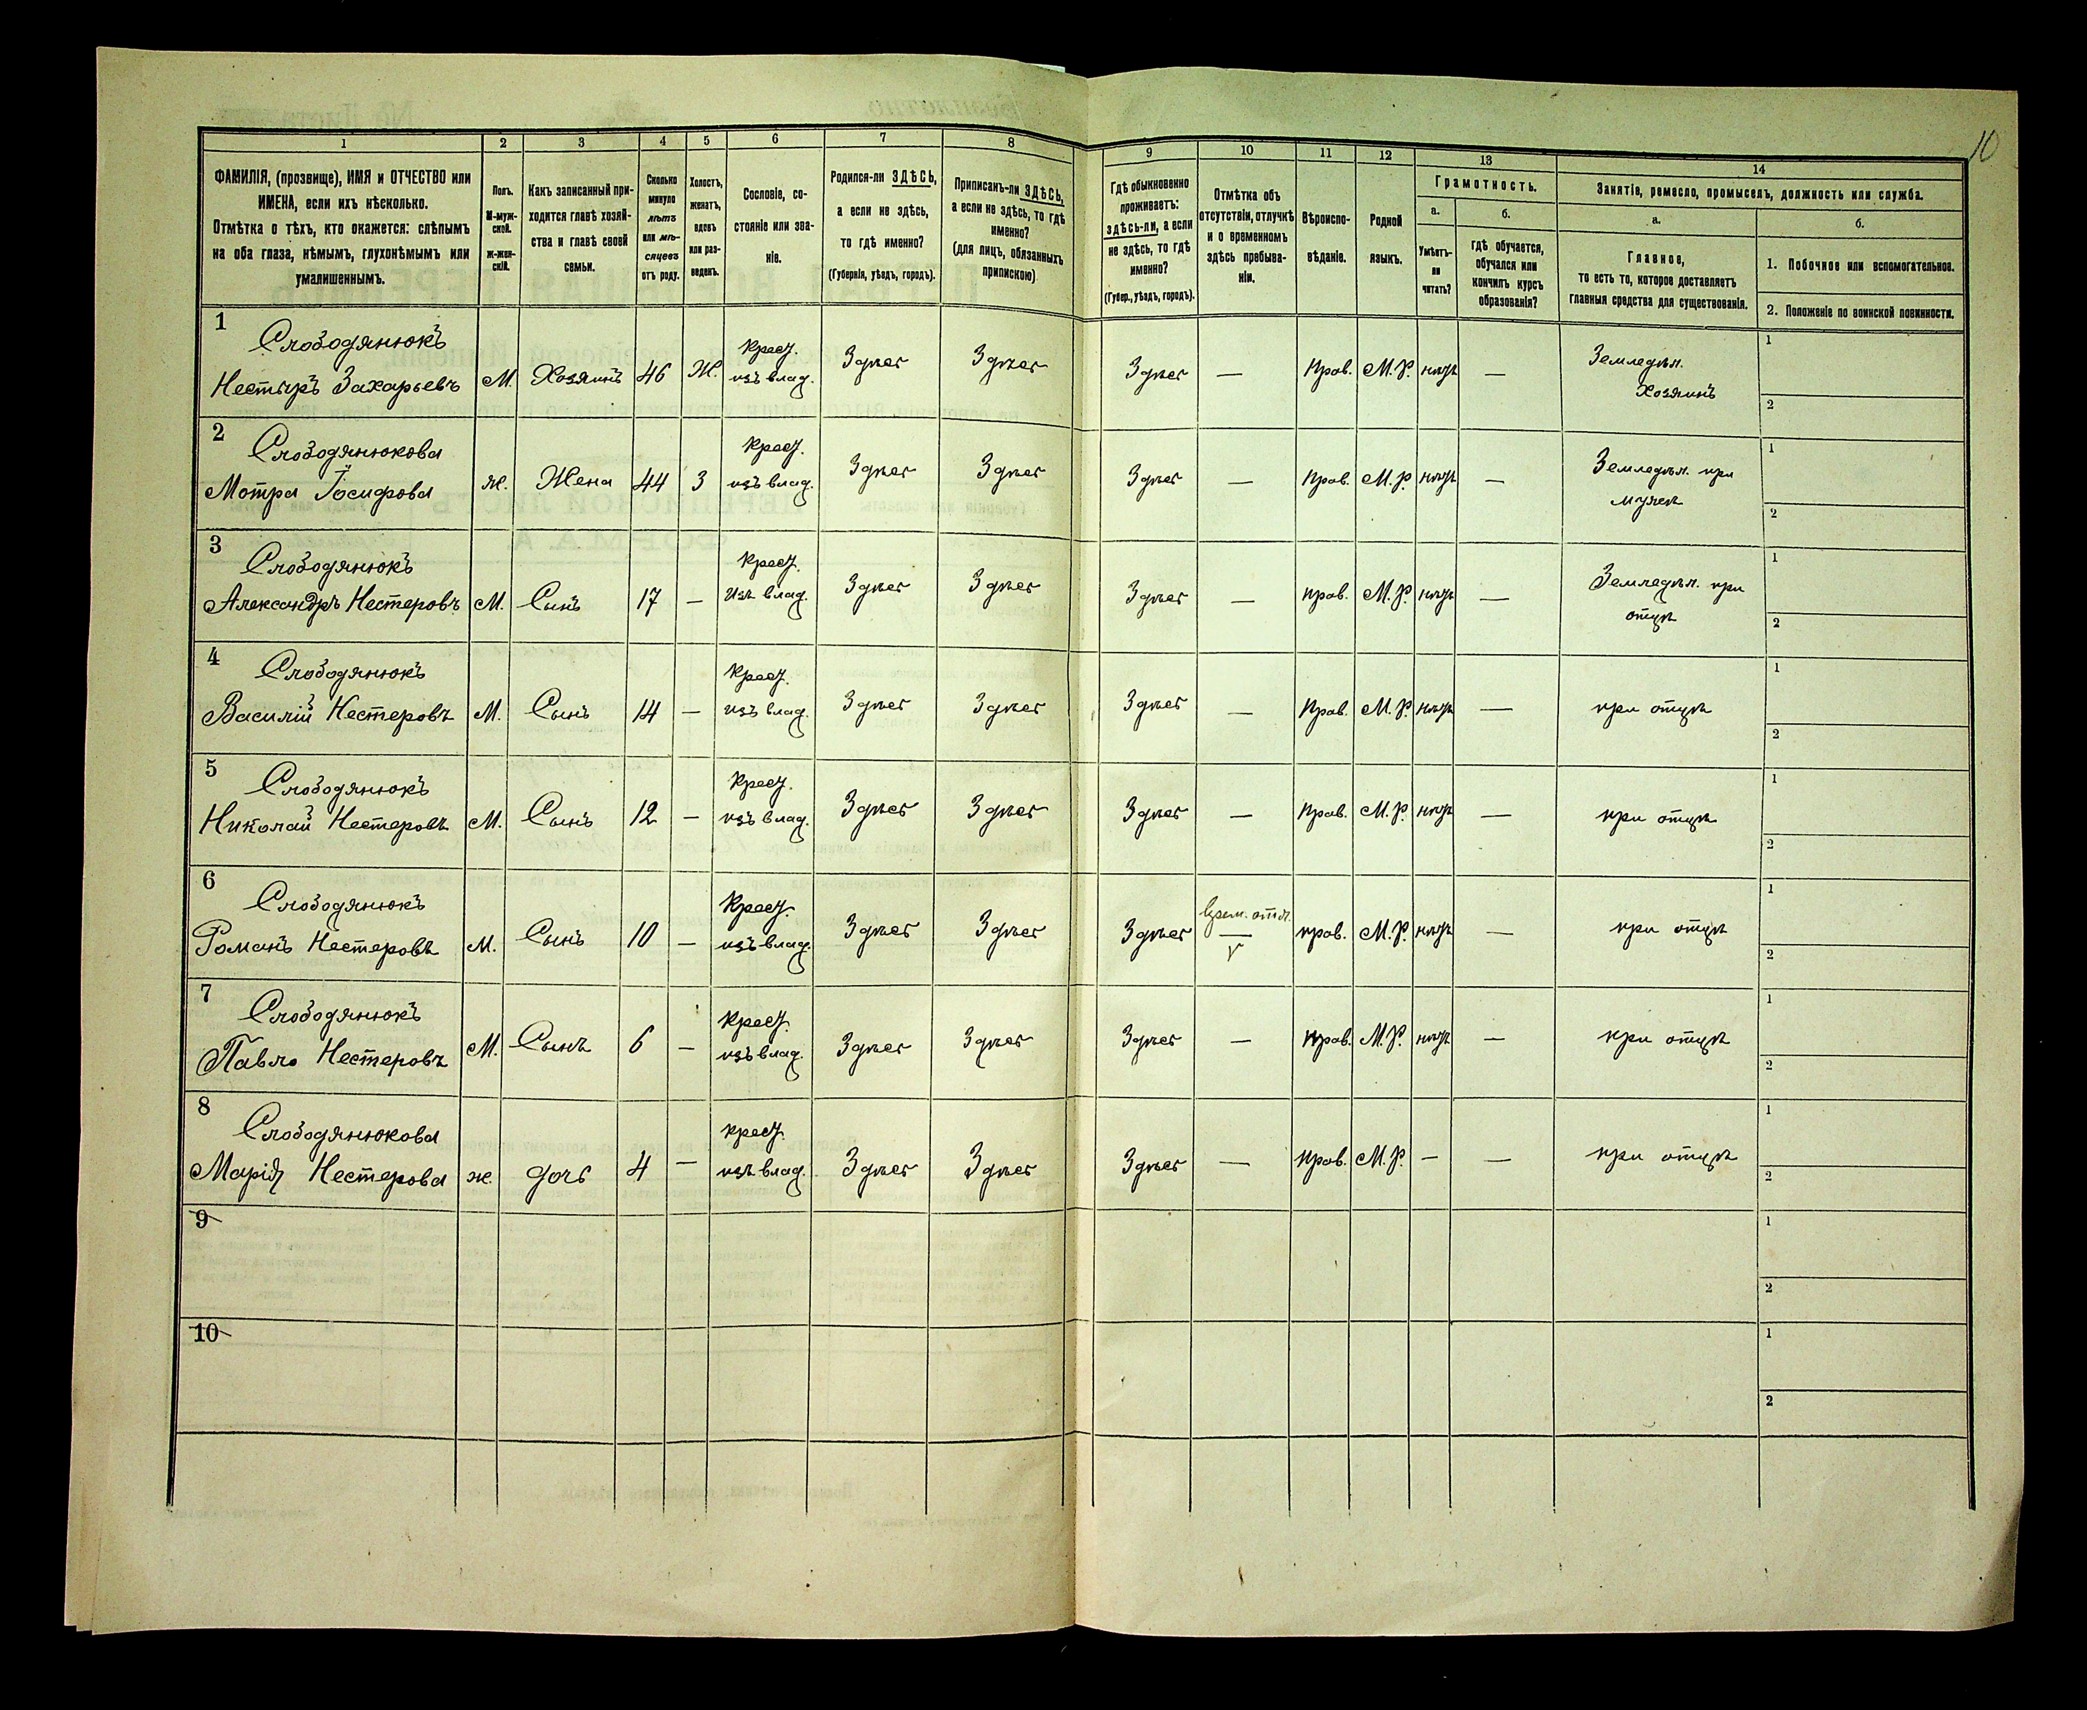 10
1 2 3 4 5 6 7 8 9 10 11 12 13 14
ФАМИЛІЯ, (прозвище), ИМЯ и ОТЧЕСТВО или
ИМЕНА, если ихъ нѣсколько.
Отмѣтка о тѣхъ, кто окажется: слѣпымъ
на оба глаза, нѣмымъ, глухонѣмымъ или
умалишеннымъ.
Полъ.
М-муж-
ской.
ж-жен-
скій.
Какъ записанный при-
ходится главѣ хозяй-
ства и главѣ своей
семьи.
Сколько
минуло
лѣтъ
или мѣ-
сяцевъ
отъ роду.
Холостъ,
женатъ,
вдовъ
или раз-
веденъ.
Сословіе, со-
стояніе или зва-
ніе.
Родился-ли ЗДѢСЬ,
а если не здѣсь,
то гдѣ именно?
(Губернія, уѣздъ, городъ).
Приписанъ-ли ЗДѢСЬ,
а если не здѣсь, то гдѣ
именно?
(для лицъ, обязанныхъ
припискою)
Гдѣ обыкновенно
проживаетъ:
здѣсь-ли, а если
не здѣсь, то гдѣ
именно?
(Губер., уѣздъ, городъ).
Отмѣтка объ
отсутствіи, отлучкѣ
и о временномъ
здѣсь пребыва-
ніи.
Вѣроиспо-
вѣданіе.
Родной
языкъ.
Грамотность.
а.
Умѣетъ-
ли
читать?
б.
гдѣ обучается,
обучался или
кончилъ курсъ
образованія?
Занятіе, ремесло, промыселъ, должность или служба.
а.
Главное,
то есть то, которое доставляетъ
главныя средства для существованія.
б.
1. Побочное или вспомогательное.
2. Положеніе по воинской повинности.
1 Слободянюкъ Крест. Земледѣл. 1
Нестыръ Захарьевъ М. Хозяинъ 46 Ж. изъ влад. Здѣсь Здѣсь Здѣсь — Прав. М.Р. нѣтъ — Хозяинъ 2
2 Слободянюкова Крест. Земледѣл. при 1
Мотра Іосифова ж. Жена 44 З изъ влад. Здѣсь Здѣсь Здѣсь — Прав. М.Р. нѣтъ — мужѣ 2
3 Слободянюкъ Крест. Земледѣл. при 1
Александръ Нестеровъ М. Сынъ 17 — изъ влад. Здѣсь Здѣсь Здѣсь — прав. М.Р. нѣтъ — отцѣ 2
4 Слободянюкъ Крест. 1
Василій Нестеровъ М. Сынъ 14 — изъ влад. Здѣсь Здѣсь Здѣсь — Прав. М.Р. нѣтъ — при отцѣ 2
5 Слободянюкъ Крест. 1
Николай Нестеровъ М. Сынъ 12 — изъ влад. Здѣсь Здѣсь Здѣсь — Прав. М.Р. нѣтъ — при отцѣ 2
6 Слободянюкъ Крест. врем. отл. 1
Романъ Нестеровъ М. Сынъ 10 — изъ влад. Здѣсь Здѣсь Здѣсь — прав. М.Р. нѣтъ — при отцѣ 2
7 Слободянюкъ Крест. 1
Павло Нестеровъ М. Сынъ 6 — изъ влад. Здѣсь Здѣсь Здѣсь — прав. М.Р. нѣтъ — при отцѣ 2
8 Слободянюкова крест. 1
Марія Нестерова ж. дочь 4 — изъ влад. Здѣсь Здѣсь Здѣсь — прав. М.Р. — — при отцѣ 2
9 1
2
10 1
2